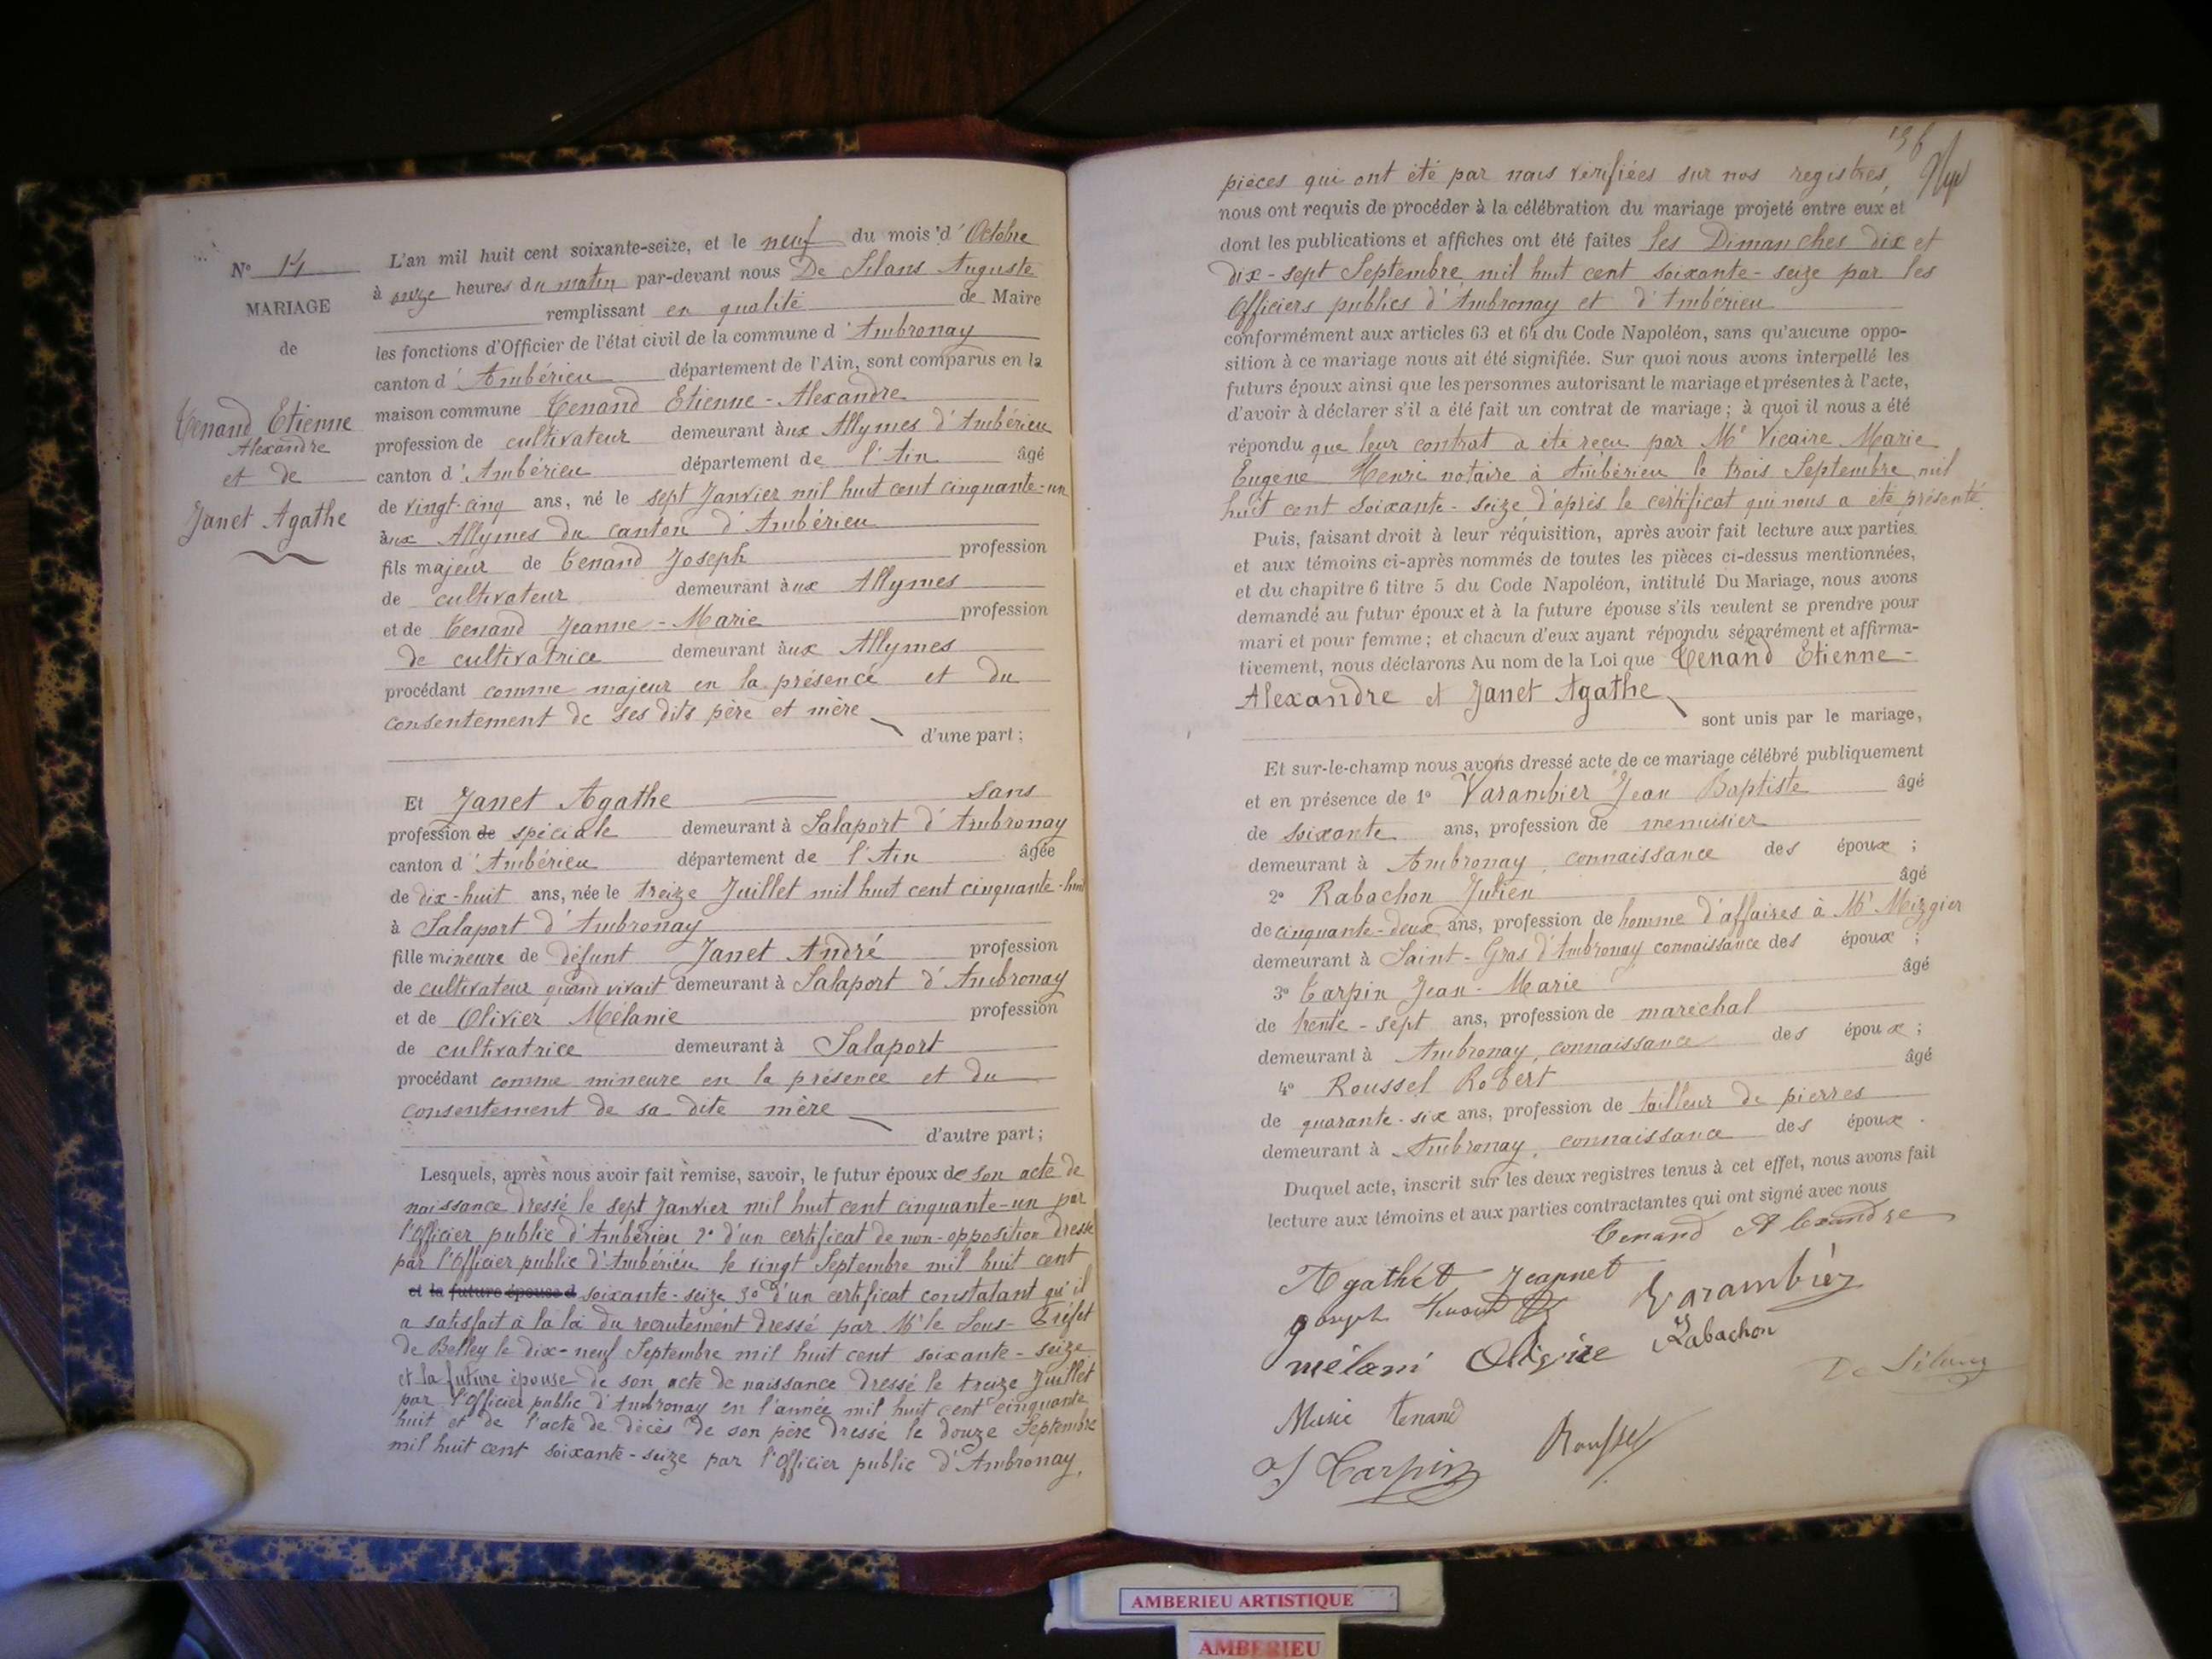 N° 14
MARIAGE
de
Tenand Etienne
Alexandre
et de
Janet Agathe
L'an mil huit cent soixante-seize, et le neuf du mois d' Octobre
à onze heures du matin par-devant nous De Silans Auguste
remplissant en qualité de Maire
les fonctions d'Officier de l'état civil de la commune d'Ambronay
canton d'Ambérieu département de l'Ain, sont comparus en la
maison commune Tenand Etienne-Alexandre
profession de cultivateur demeurant àux Allymes d'Ambérieu
canton d'Ambérieu département de l'Ain âgé
de vingt-cinq ans, né le sept Janvier mil huit cent cinquante-un
àux Allymes du canton d'Ambérieu
fils majeur de Tenand Joseph profession
de cultivateur demeurant àux Allymes
et de Tenand Jeanne-Marie profession
de cultivatrice demeurant àux Allymes
procédant comme majeur en la présence et du
consentement de ses dits père et mère
d'une part;
Et Janet Agathe sans
profession de spéciale demeurant à Salaport d'Ambronay
canton d'Ambérieu département de l'Ain âgée
de dix-huit ans, née le treize Juillet mil huit cent cinquante-huit
à Salaport d'Ambronay
fille mineure de défunt Janet André profession
de cultivateur quand vivait demeurant à Salaport d'Ambronay
et de Olivier Mélanie profession
de cultivatrice demeurant à Salaport
procédant comme mineure en la présence et du
consentement de sa dite mère
d'autre part;
Lesquels, après nous avoir fait remise, savoir, le futur époux de son acte de
naissance dressé le sept Janvier mil huit cent cinquante-un par
l'Officier public d'Ambérieu 2° d'un certificat de non-opposition dressé
par l'Officier public d'Ambérieu le vingt Septembre mil huit cent
et la future épouse d soixante-seize 3° d'un certificat constatant qu'il
a satisfait à la loi du recrutement dressé par Mr le Sous-Préfet
de Belley le dix-neuf Septembre mil huit cent soixante-seize
et la future épouse de son acte de naissance dressé le treize Juillet
par l'Officier public d'Ambronay en l'année mil huit cent cinquante
huit et de l'acte de décès de son père dressé le douze Septembre
mil huit cent soixante-seize par l'Officier public d'Ambronay,
136
pièces qui ont été par nous vérifiées sur nos registres,
nous ont requis de procéder à la célébration du mariage projeté entre eux et
dont les publications et affiches ont été faites les Dimanches dix et
dix-sept Septembre mil huit cent soixante-seize par les
Officiers publics d'Ambronay et d'Ambérieu
conformément aux articles 63 et 64 du Code Napoléon, sans qu'aucune oppo-
sition à ce mariage nous ait été signifiée. Sur quoi nous avons interpellé les
futurs époux ainsi que les personnes autorisant le mariage et présentes à l'acte,
d'avoir à déclarer s'il a été fait un contrat de mariage; à quoi il nous a été
répondu que leur contrat a été reçu par Me Vicaire Marie
Eugène Henri notaire à Ambérieu le trois Septembre mil
huit cent soixante-seize d'après le certificat qui nous a été présenté.
Puis, faisant droit à leur réquisition, après avoir fait lecture aux parties
et aux témoins ci-après nommés de toutes les pièces ci-dessus mentionnées,
et du chapitre 6 titre 5 du Code Napoléon, intitulé Du Mariage, nous avons
demandé au futur époux et à la future épouse s'ils veulent se prendre pour
mari et pour femme; et chacun d'eux ayant répondu séparément et affirma-
tivement, nous déclarons Au nom de la Loi que Tenand Etienne-
Alexandre et Janet Agathe
sont unis par le mariage,
Et sur-le-champ nous avons dressé acte de ce mariage célébré publiquement
et en présence de 1° Varambier Jean Baptiste âgé
de soixante ans, profession de menuisier
demeurant à Ambronay, connaissance des époux;
2° Rabachon Julien âgé
de cinquante-deux ans, profession de homme d'affaires à Mr Mizgier
demeurant à Saint-Gras d'Ambronay connaissance des époux;
3° Carpin Jean-Marie âgé
de trente-sept ans, profession de maréchal
demeurant à Ambronay, connaissance des époux;
4° Roussel Robert âgé
de quarante-six ans, profession de tailleur de pierres
demeurant à Ambronay, connaissance des époux.
Duquel acte, inscrit sur les deux registres tenus à cet effet, nous avons fait
lecture aux témoins et aux parties contractantes qui ont signé avec nous
Tenand Alexandre
Agathe Jeannet
Varambier
Joseph Tenand
Rabachon
mélani Olivie
De Silans
Marie tenand
Roussel
J Carpin
AMBERIEU ARTISTIQUE
AMBERIEU